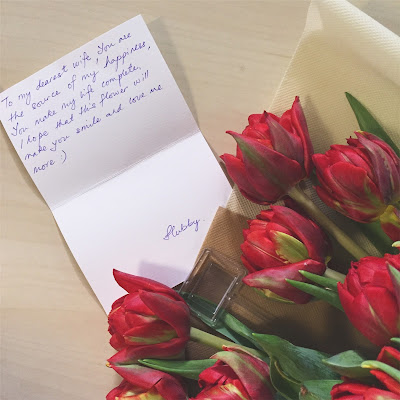 To my dearest wife, You are
the source of my happiness,
You make my life complete.
I hope that this flower will
make you smile and love me
more :)
Hubby.